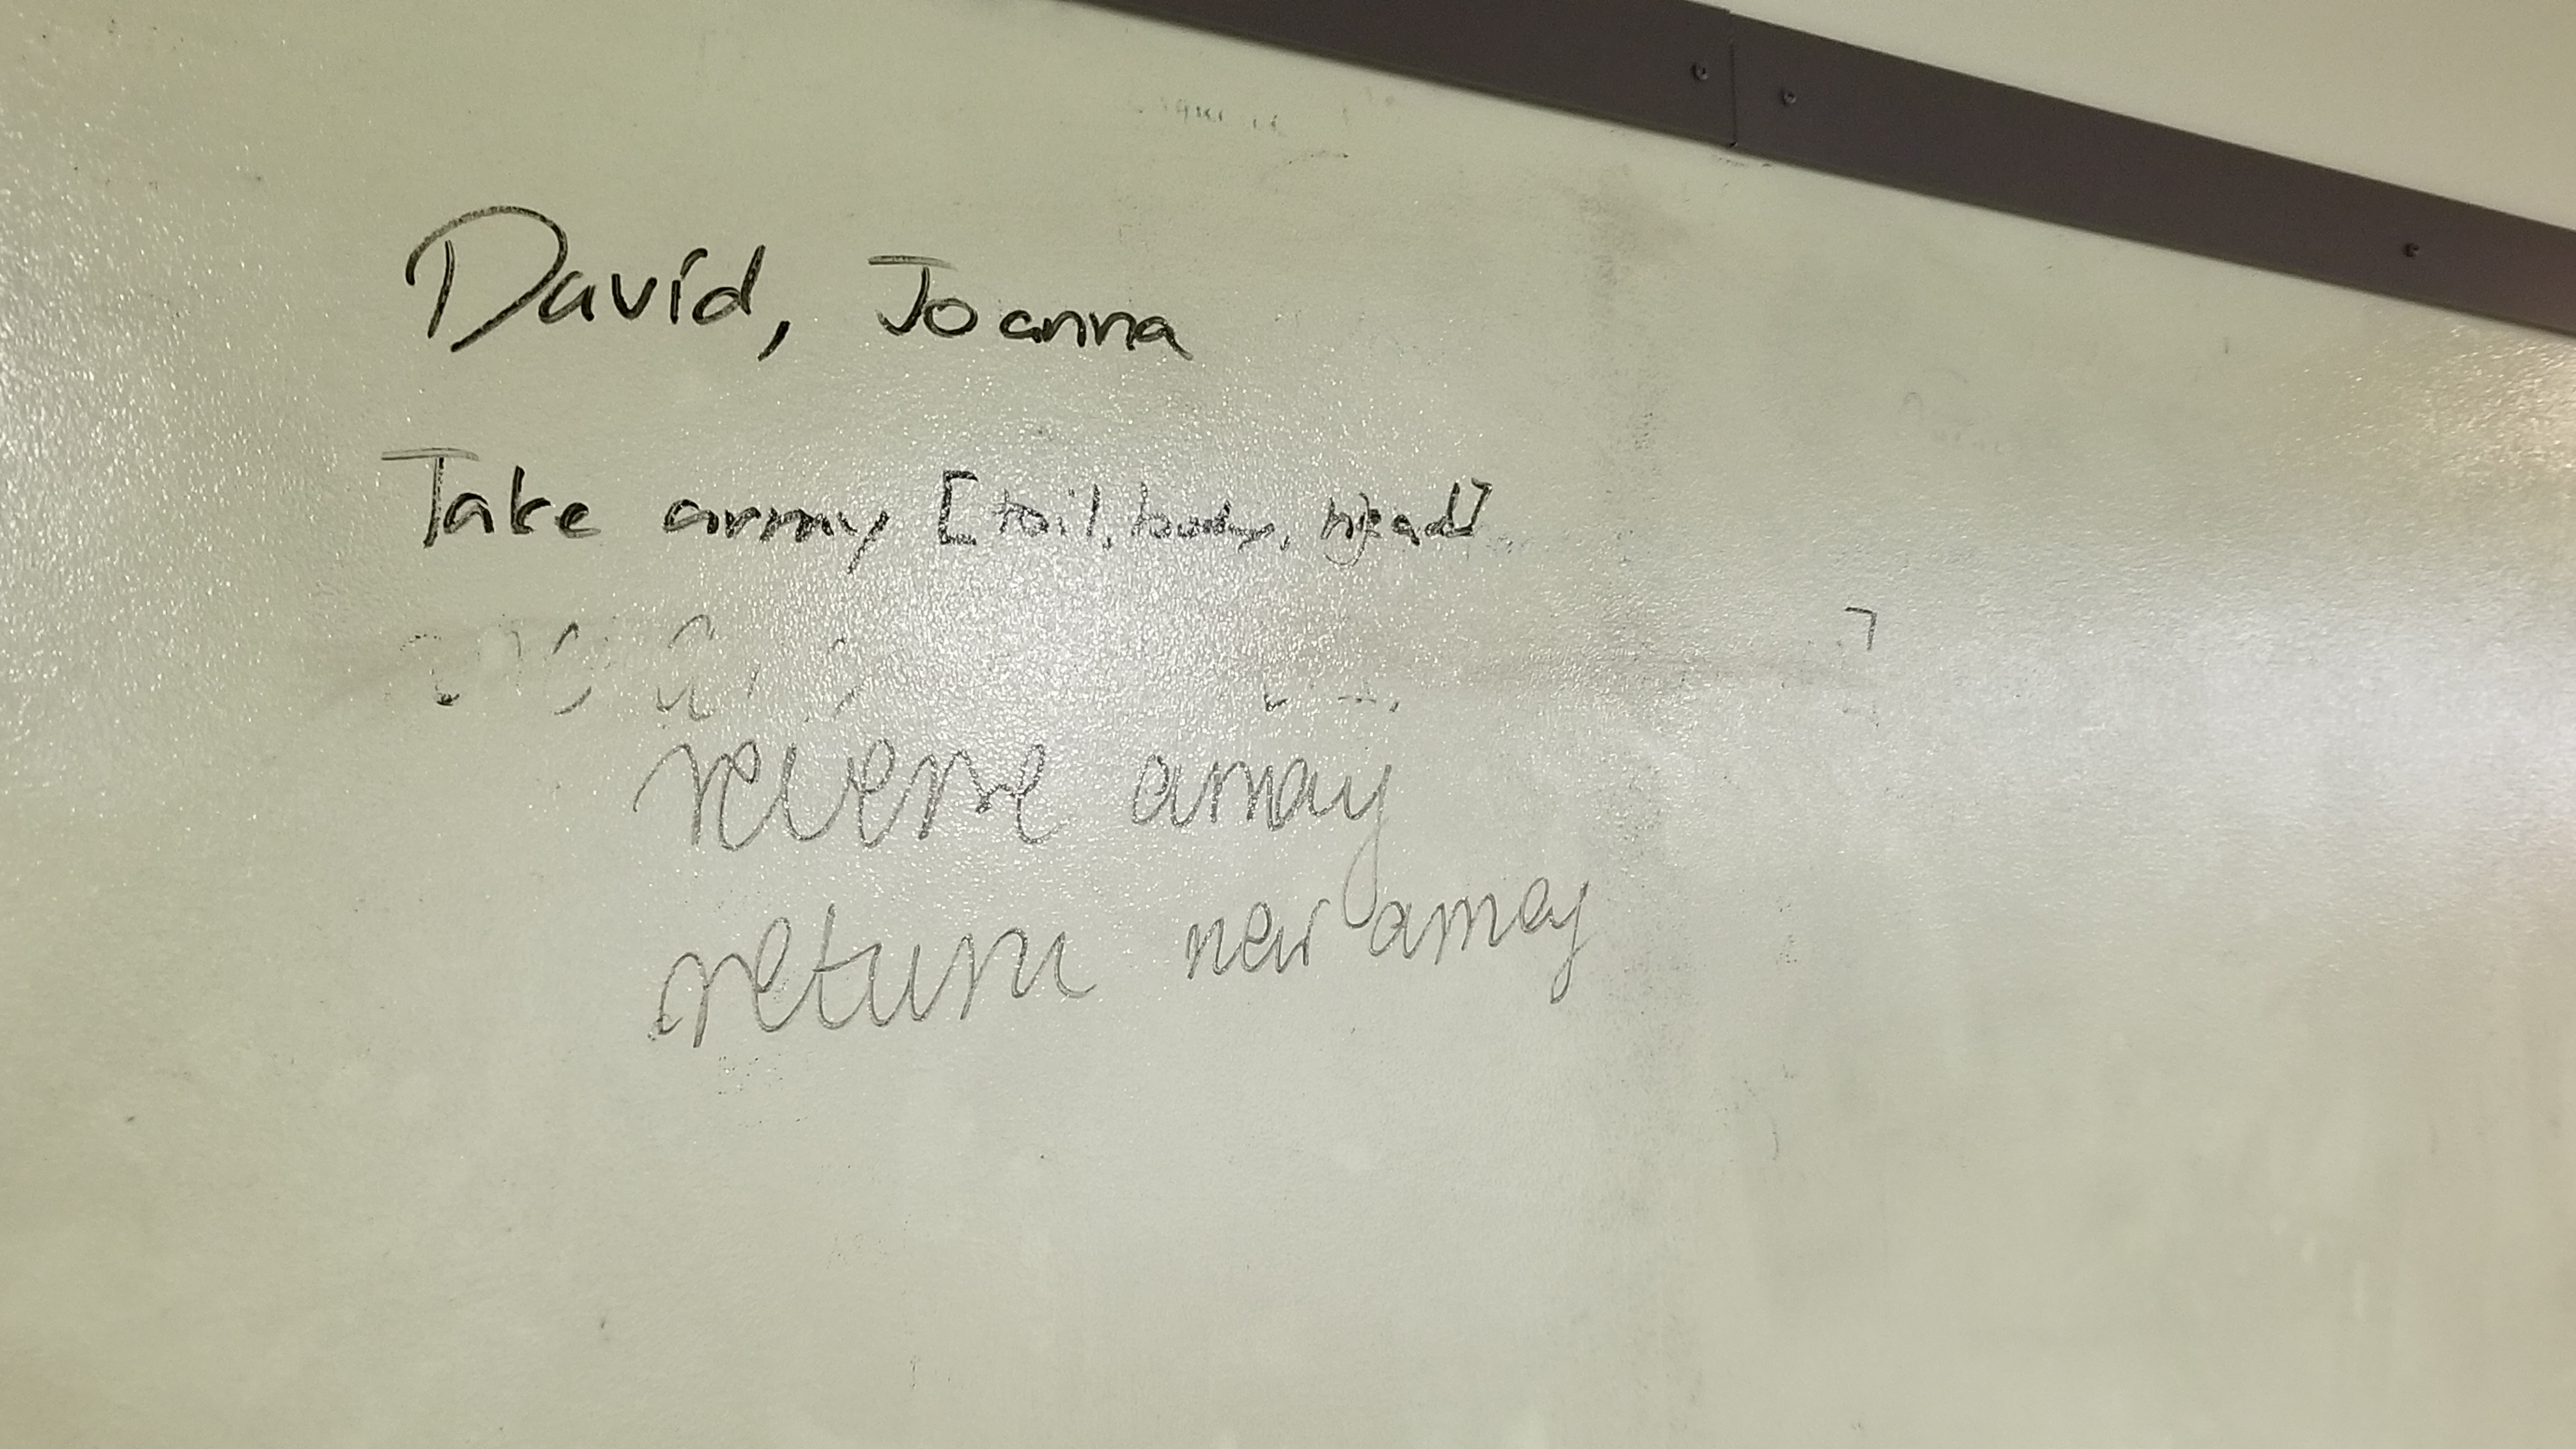 David, Joanna
Take array [tail, body, head]
reverse array
return new array